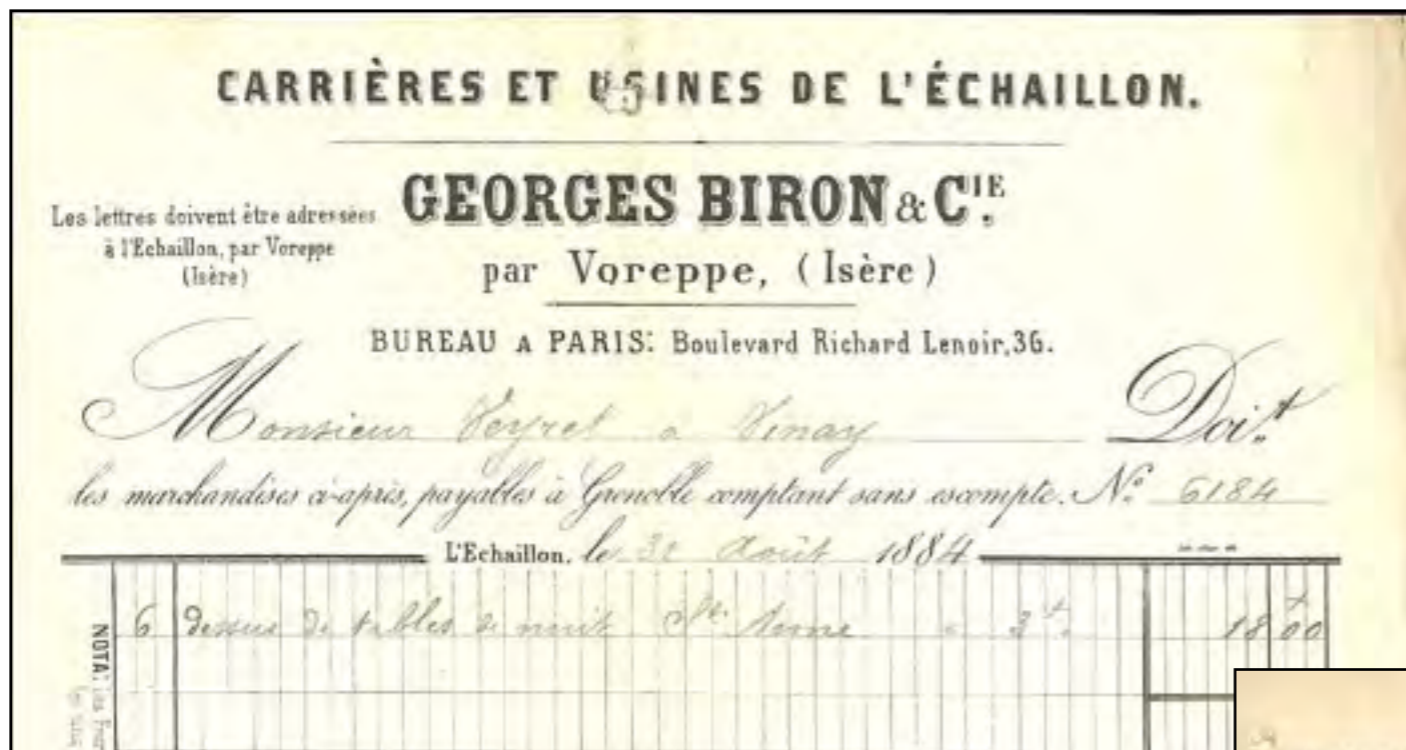 CARRIÈRES ET USINES DE L'ÉCHAILLON.
GEORGES BIRON & CIE.
Les lettres doivent être adressées
à l'Echaillon, par Voreppe
(Isère)
par Voreppe, (Isère)
BUREAU A PARIS: Boulevard Richard Lenoir, 36.
Monsieur Veyret à Vinay Doit
les marchandises ci-après, payables à Grenoble comptant sans escompte. No. 6184
L'Echaillon, le Août 1884
6 dessus de tables de nuit Ste Anne à 3f. 18 00
NOTA: Les